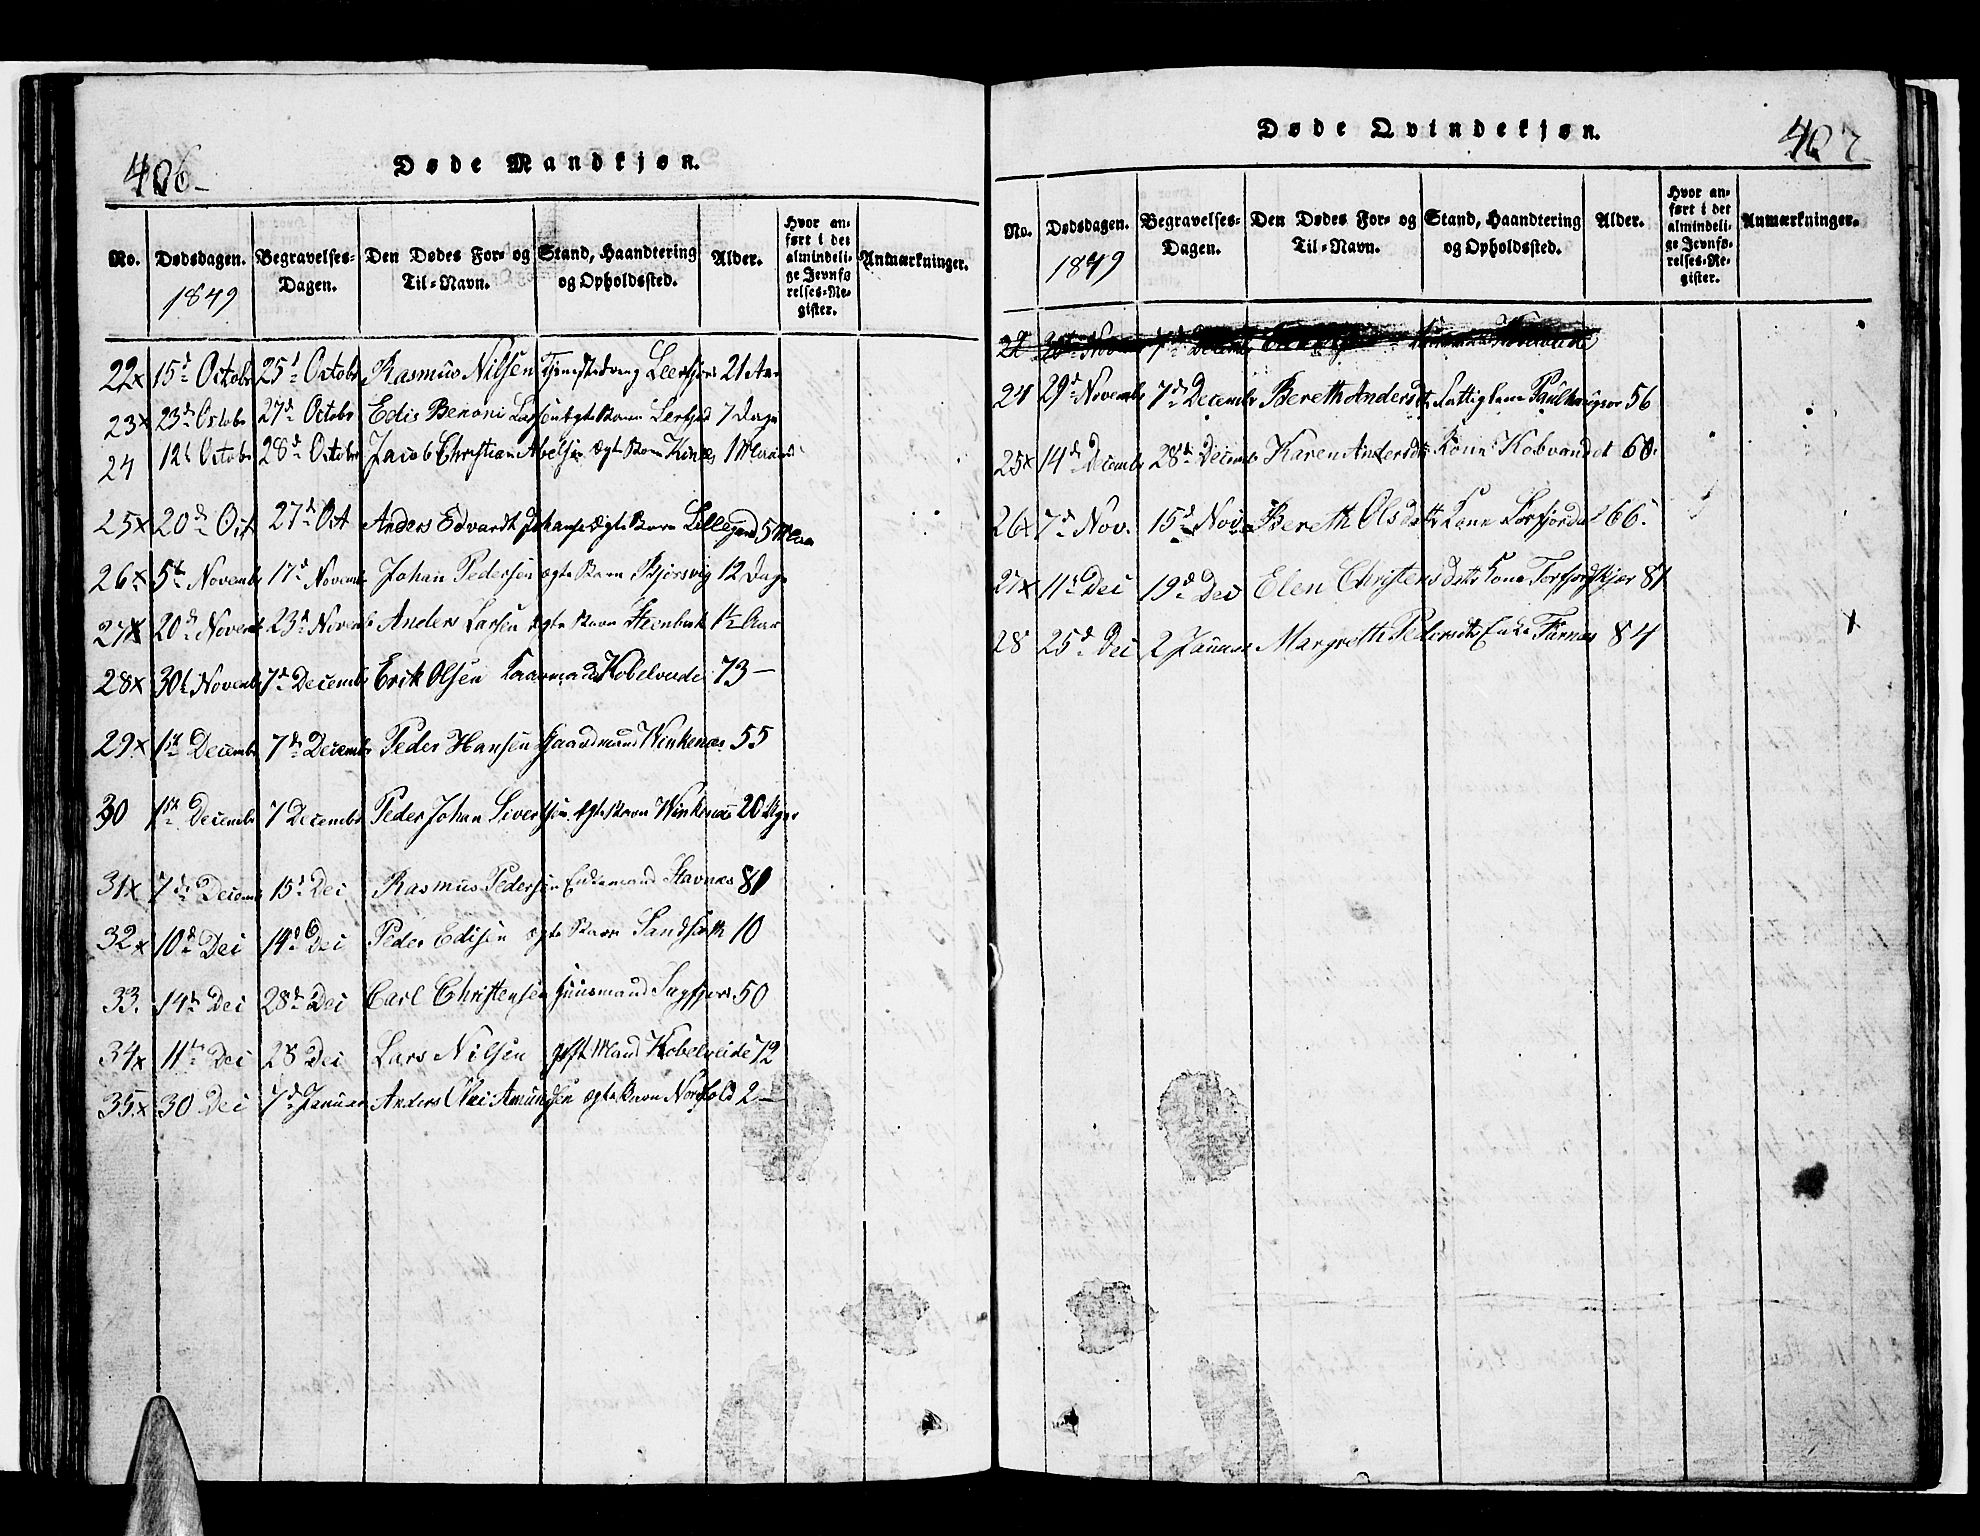 406
Døde Mandkjøn.
No. Dødsdagen. 1849 Begravelses-Dagen. Den Dødes For- og Til-Navn. Stand, Haandtering og Opholdssted. Alder. Hvor anført i det almindelige Jevnførelses-Register. Anmærkninger.
22x 15d Octobr 25d Octobr Rasmus Nilsen 21 Aar
23x 23d Octobr 27d Octobr Edis Benoni Larsen ægte Barn 7 Dage
24 12t Octobr 28d Octobr Jacob Christian Abelsen ægte Barn 1 Maaned
25x 20d Oct 27d Oct Anders Edvardt Johanse ægte Barn 5 Maa
26x 5t Novembr 17d Novembr Johan Pedersen ægte Barn 12 Dage
27x 20d Novembr 23d Novemb Anders Larsen ægte Barn 1½ Aar
28x 30t Novembr 7d Decembr Erik Olsen Kaarmand Kobelveide 73
29x 1st Decembr 7d Decembr Peder Hansen Gaardmand Winkenæs 55
30 1st Decembr 7 Decembr Peder Johan Sivertsen ægte Barn Winkenæs 20 Uger
31x 7d Decemb 15d Dec Rasmus Pedersen Enkemand 81
32x 10d Dec 14d Dec Peder Edisen ægte Barn 10
33. 14d Dec 28d Dec Carl Christensen Huusmand Sagfjord 50
34x 11te Dec 28 Dec Lars Nilsen gift Mand Kobelveide 72
35x 30 Dec 7d Januar Anders Amundsen ægte Barn Nordfold 2
407
Døde Qvindekjøn.
No. Dødsdagen. 1849 Begravelses-Dagen. Den Dødes For- og Til-Navn. Stand, Haandtering og Opholdssted. Alder. Hvor anført i det almindelige Jevnførelses-Register. Anmærkninger.
24 29d Novembr 7d Decembr Bereth Andersdt 56
25x 14d Decembr 28d Decemb Karen Andersdt Kone Kobvandet 60
26x 7d Nov. 15d Nov Bereth Olsdatt Kone 66.
27x 11t Dec 19d Dec Elen Christensdatt Kone 81
28 25d Dec 2 Januar Margreth Pedersdt Enke 84